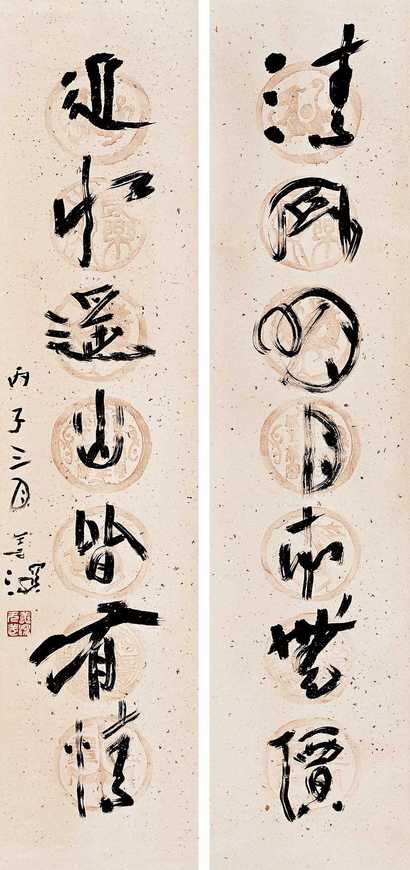 清風明月本無價
近水遙山皆有情
丙子三月